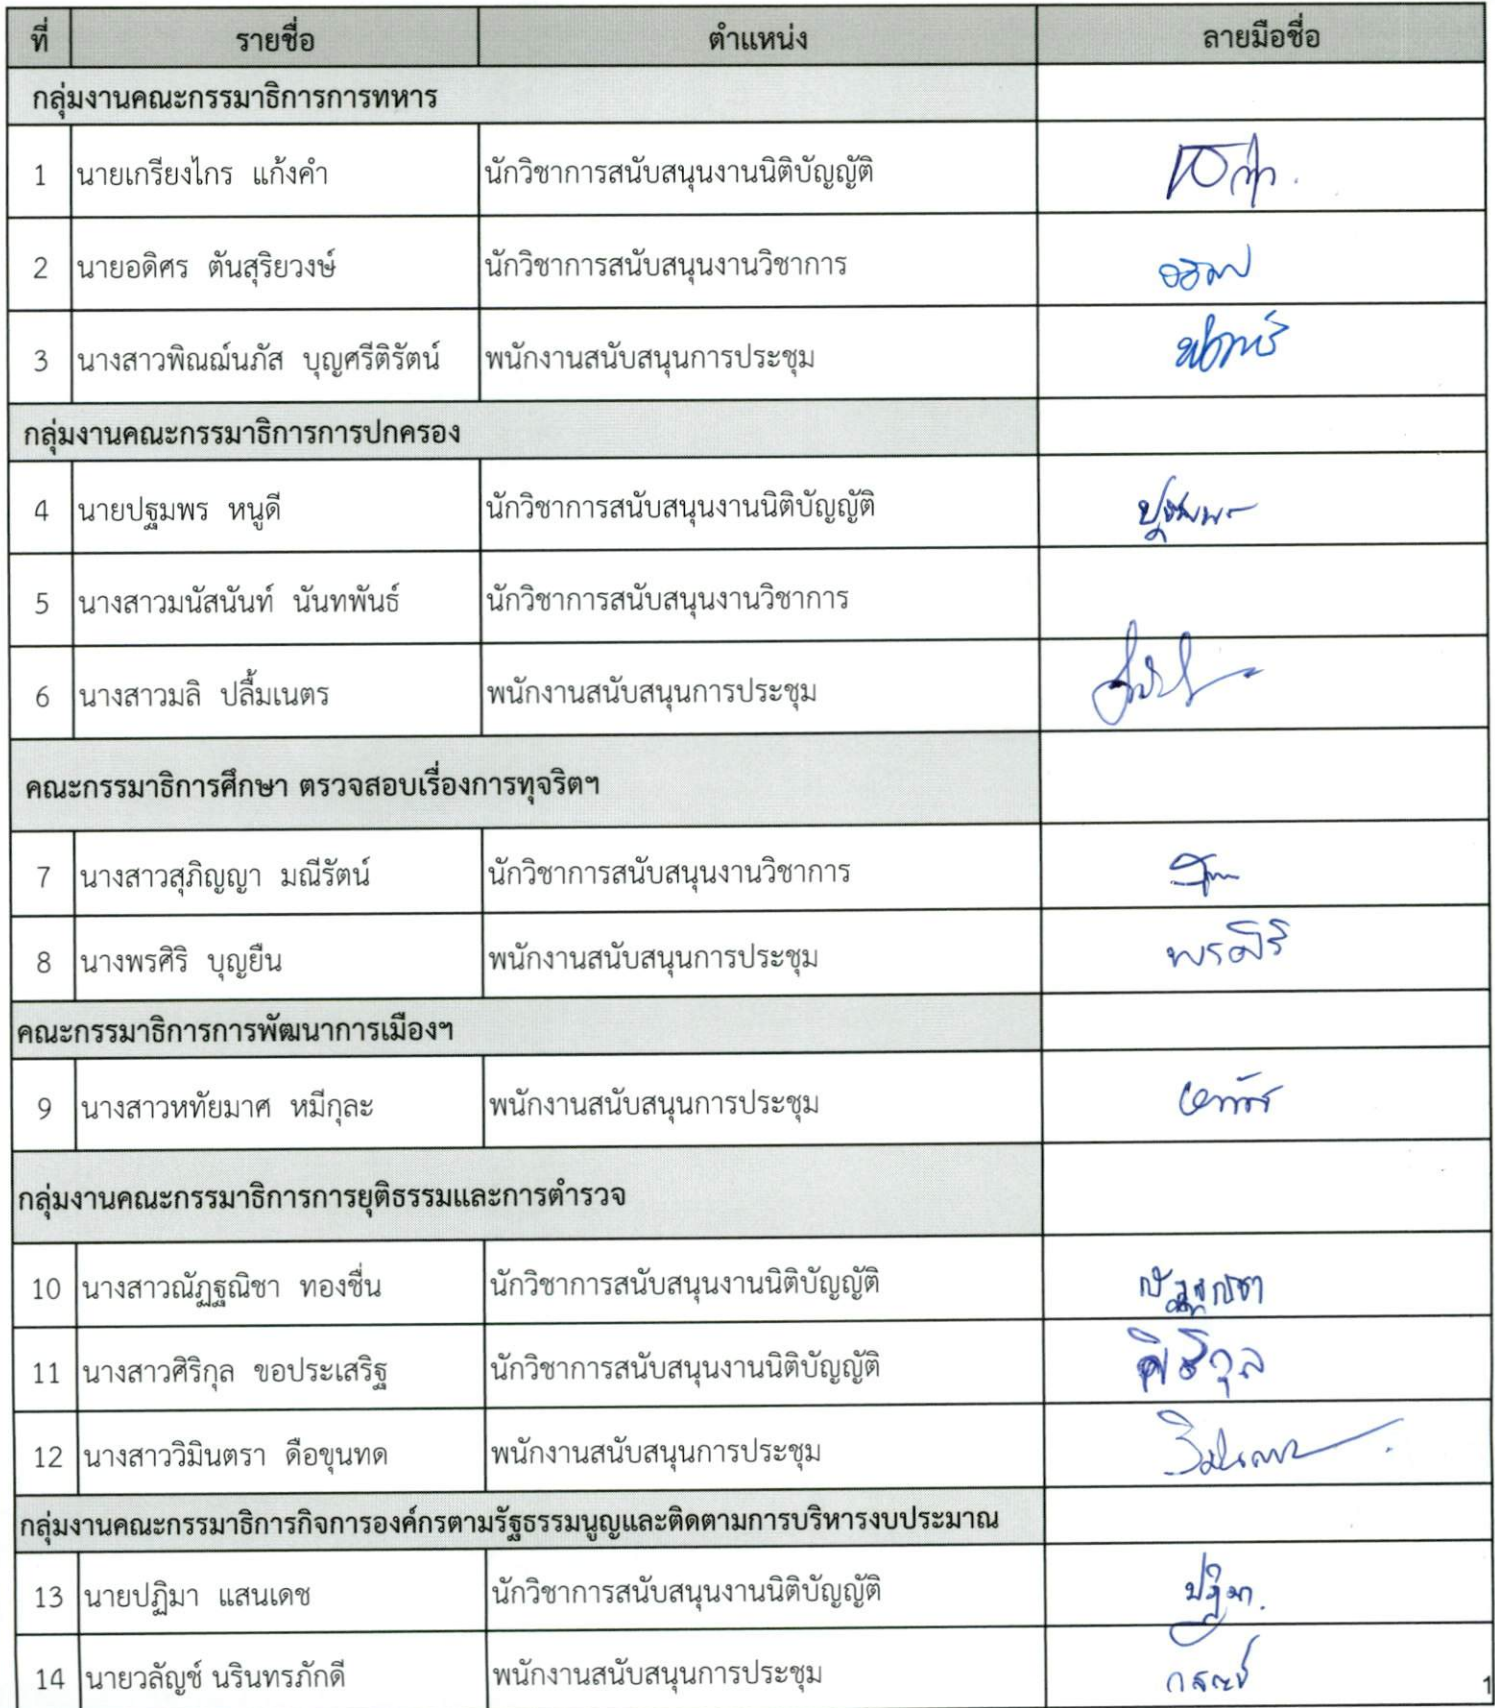 ที่ รายชื่อ ตำแหน่ง ลายมือชื่อ
กลุ่มงานคณะกรรมาธิการการทหาร
1 นายเกรียงไกร แก้งคำ นักวิชาการสนับสนุนงานนิติบัญญัติ
2 นายอดิศร ตันสุริยวงษ์ นักวิชาการสนับสนุนงานวิชาการ
3 นางสาวพิณฌ์นภัส บุญศรีติรัตน์ พนักงานสนับสนุนการประชุม
กลุ่มงานคณะกรรมาธิการการปกครอง
4 นายปฐมพร หนูดี นักวิชาการสนับสนุนงานนิติบัญญัติ ปฐมพร
5 นางสาวมนัสนันท์ นันทพันธ์ นักวิชาการสนับสนุนงานวิชาการ
6 นางสาวมลิ ปลื้มเนตร พนักงานสนับสนุนการประชุม
คณะกรรมาธิการศึกษา ตรวจสอบเรื่องการทุจริตฯ
7 นางสาวสุภิญญา มณีรัตน์ นักวิชาการสนับสนุนงานวิชาการ
8 นางพรศิริ บุญยืน พนักงานสนับสนุนการประชุม พรศิริ
คณะกรรมาธิการการพัฒนาการเมืองฯ
9 นางสาวหทัยมาศ หมีกุละ พนักงานสนับสนุนการประชุม
กลุ่มงานคณะกรรมาธิการการยุติธรรมและการตำรวจ
10 นางสาวณัฏฐณิชา ทองชื่น นักวิชาการสนับสนุนงานนิติบัญญัติ ณัฏฐณิชา
11 นางสาวศิริกุล ขอประเสริฐ นักวิชาการสนับสนุนงานนิติบัญญัติ ศิริกุล
12 นางสาววิมินตรา ดือขุนทด พนักงานสนับสนุนการประชุม
กลุ่มงานคณะกรรมาธิการกิจการองค์กรตามรัฐธรรมนูญและติดตามการบริหารงบประมาณ
13 นายปฏิมา แสนเดช นักวิชาการสนับสนุนงานนิติบัญญัติ ปฏิมา
14 นายวลัญช์ นรินทรภักดี พนักงานสนับสนุนการประชุม
1